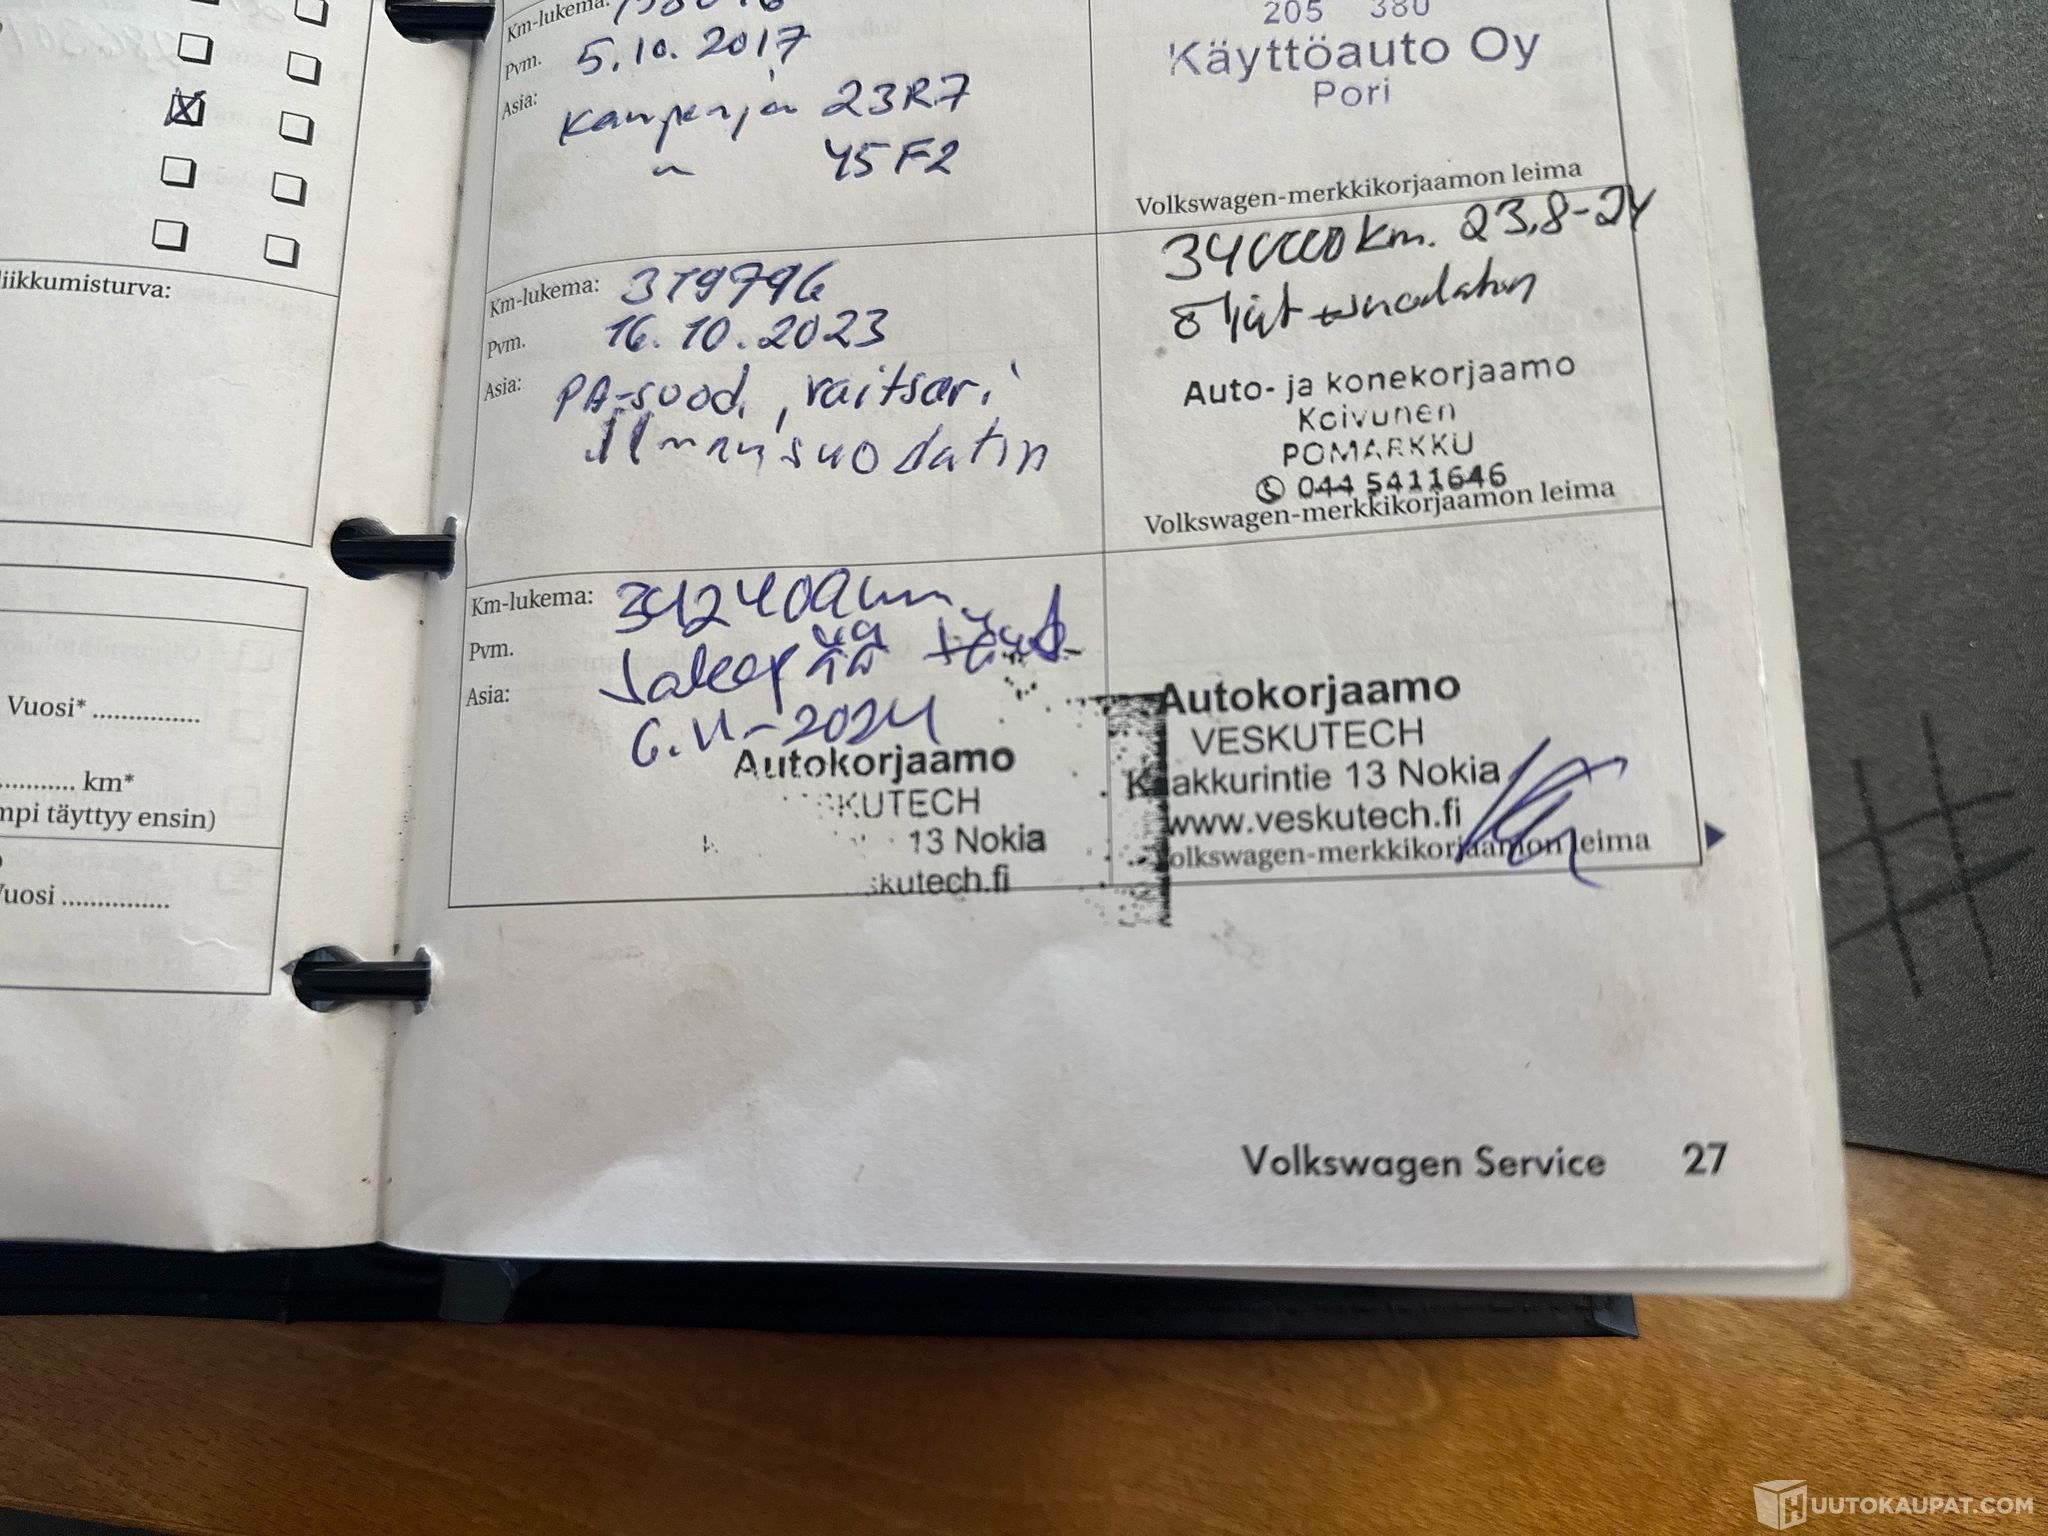 Km-lukema:
Pvm. 5.10.2017
Asia: Kampanja 23R7
" 45F2
205 380
Käyttöauto Oy
Pori
Volkswagen-merkkikorjaamon leima
liikkumisturva:
Km-lukema: 319796
Pvm. 16.10.2023
Asia: PA-suod., raitisari
Ilmansuodatin
340000km. 23,8-24
Öljyt suodatin
Auto- ja konekorjaamo
Koivunen
POMARKKU
044 5411646
Volkswagen-merkkikorjaamon leima
Km-lukema: 342400km
Pvm.
Asia: Jakopää
6.11-2024
Autokorjaamo
SKUTECH
13 Nokia
skutech.fi
Autokorjaamo
VESKUTECH
Kaakkurintie 13 Nokia
www.veskutech.fi
Volkswagen-merkkikorjaamon leima
Vuosi* ...............
............ km*
mpi täyttyy ensin)
Vuosi ...............
Volkswagen Service 27
HUUTOKAUPAT.COM